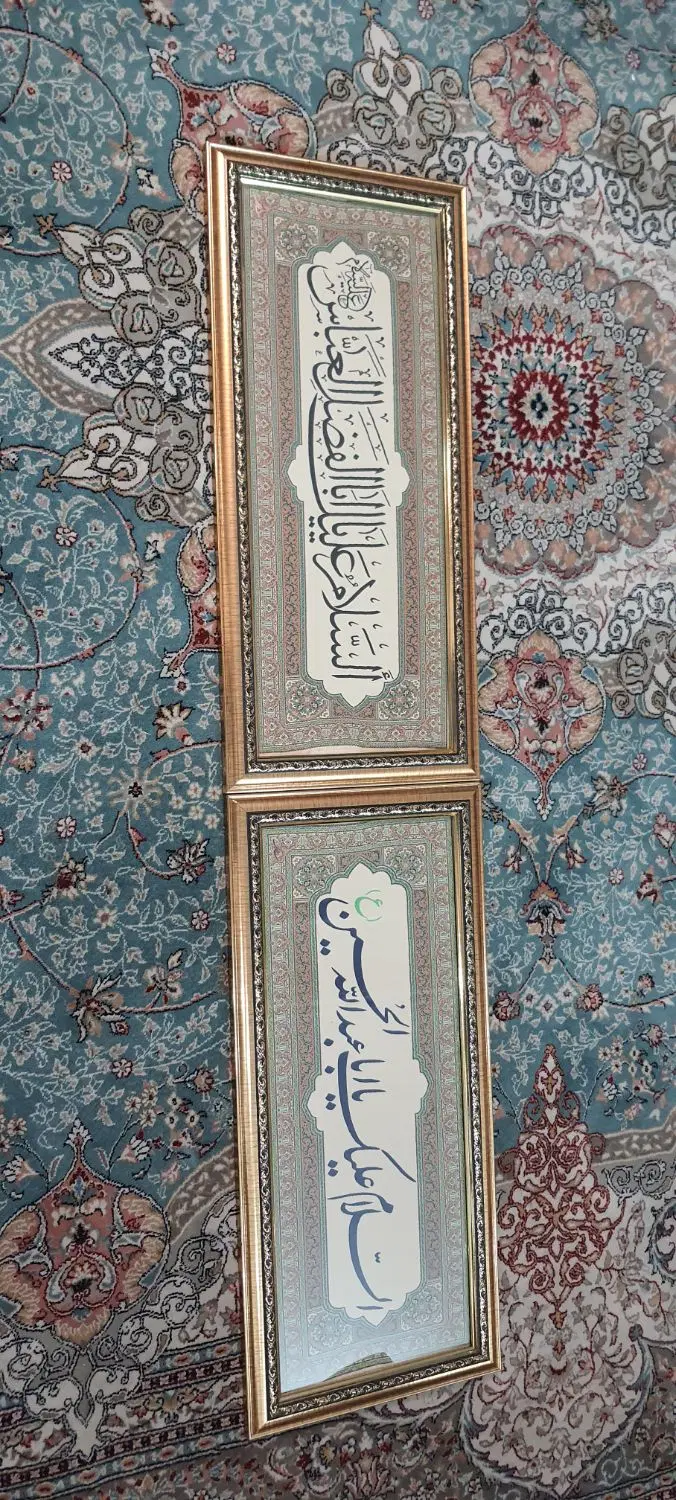 السلام علیک یا ابا الفضل العباس علیه السلام
السلام علیک یا ابا عبدالله الحسین ع